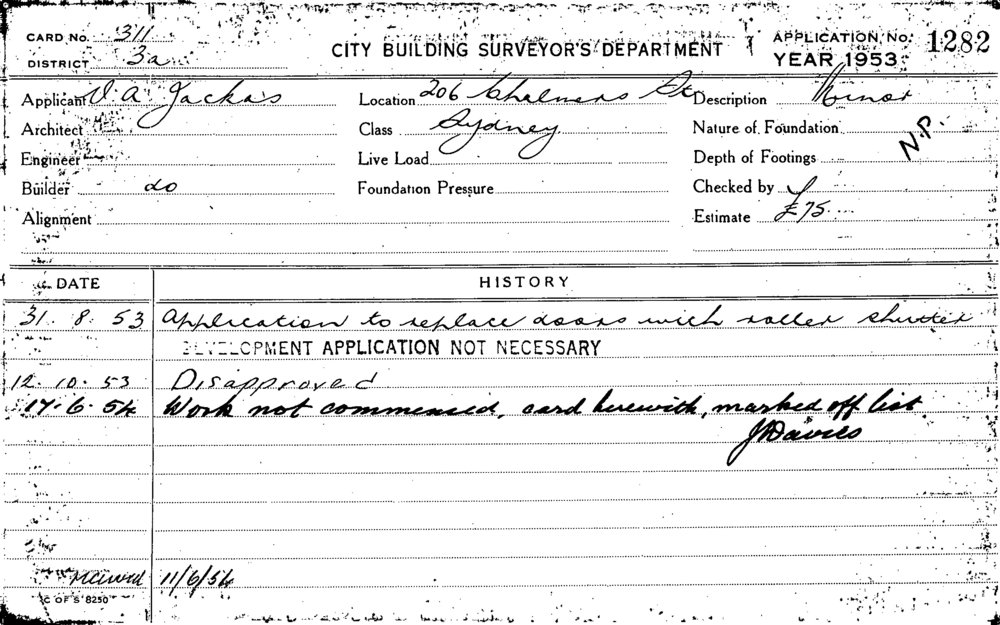 CARD No. 311
DISTRICT 3a
CITY BUILDING SURVEYOR'S DEPARTMENT
APPLICATION No. 1282
YEAR 1953
Applicant V. A. Jackas
Location 206 Chalmers St
Description Minor
Architect
Class Sydney
Nature of Foundation
N.P.
Engineer
Live Load
Depth of Footings
Builder do
Foundation Pressure
Checked by
Alignment
Estimate £75
DATE HISTORY
31. 8. 53 Application to replace doors with roller shutter
DEVELOPMENT APPLICATION NOT NECESSARY
12. 10. 53 Disapproved
17. 6. 54 Work not commenced, card herewith, marked off list
JDavies
11/6/54
C OF S 8250